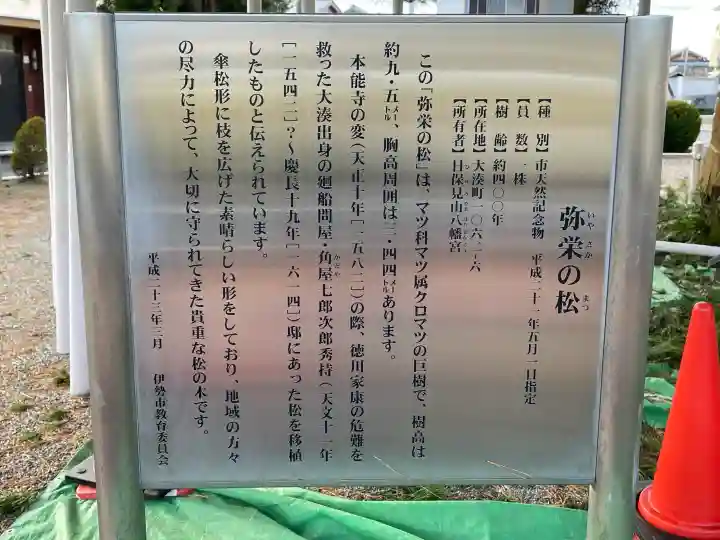 弥栄の松
いやさかのまつ
【種　別】市天然記念物　平成二十一年五月一日指定
【員　数】一株
【樹　齢】約四〇〇年
【所在地】大湊町一〇六二-六
【所有者】日保見山八幡宮
この「弥栄の松」は、マツ科マツ属クロマツの巨樹で、樹高は
約九・五メートル、胸高周囲は三・四四メートルあります。
本能寺の変（天正十年［一五八二］）の際、徳川家康の危難を
救った大湊出身の廻船問屋・角屋七郎次郎秀持（天文十一年
［一五四二］？～慶長十九年［一六一四］）邸にあった松を移植
したものと伝えられています。
傘松形に枝を広げた素晴らしい形をしており、地域の方々
の尽力によって、大切に守られてきた貴重な松の木です。
平成二十三年三月　伊勢市教育委員会